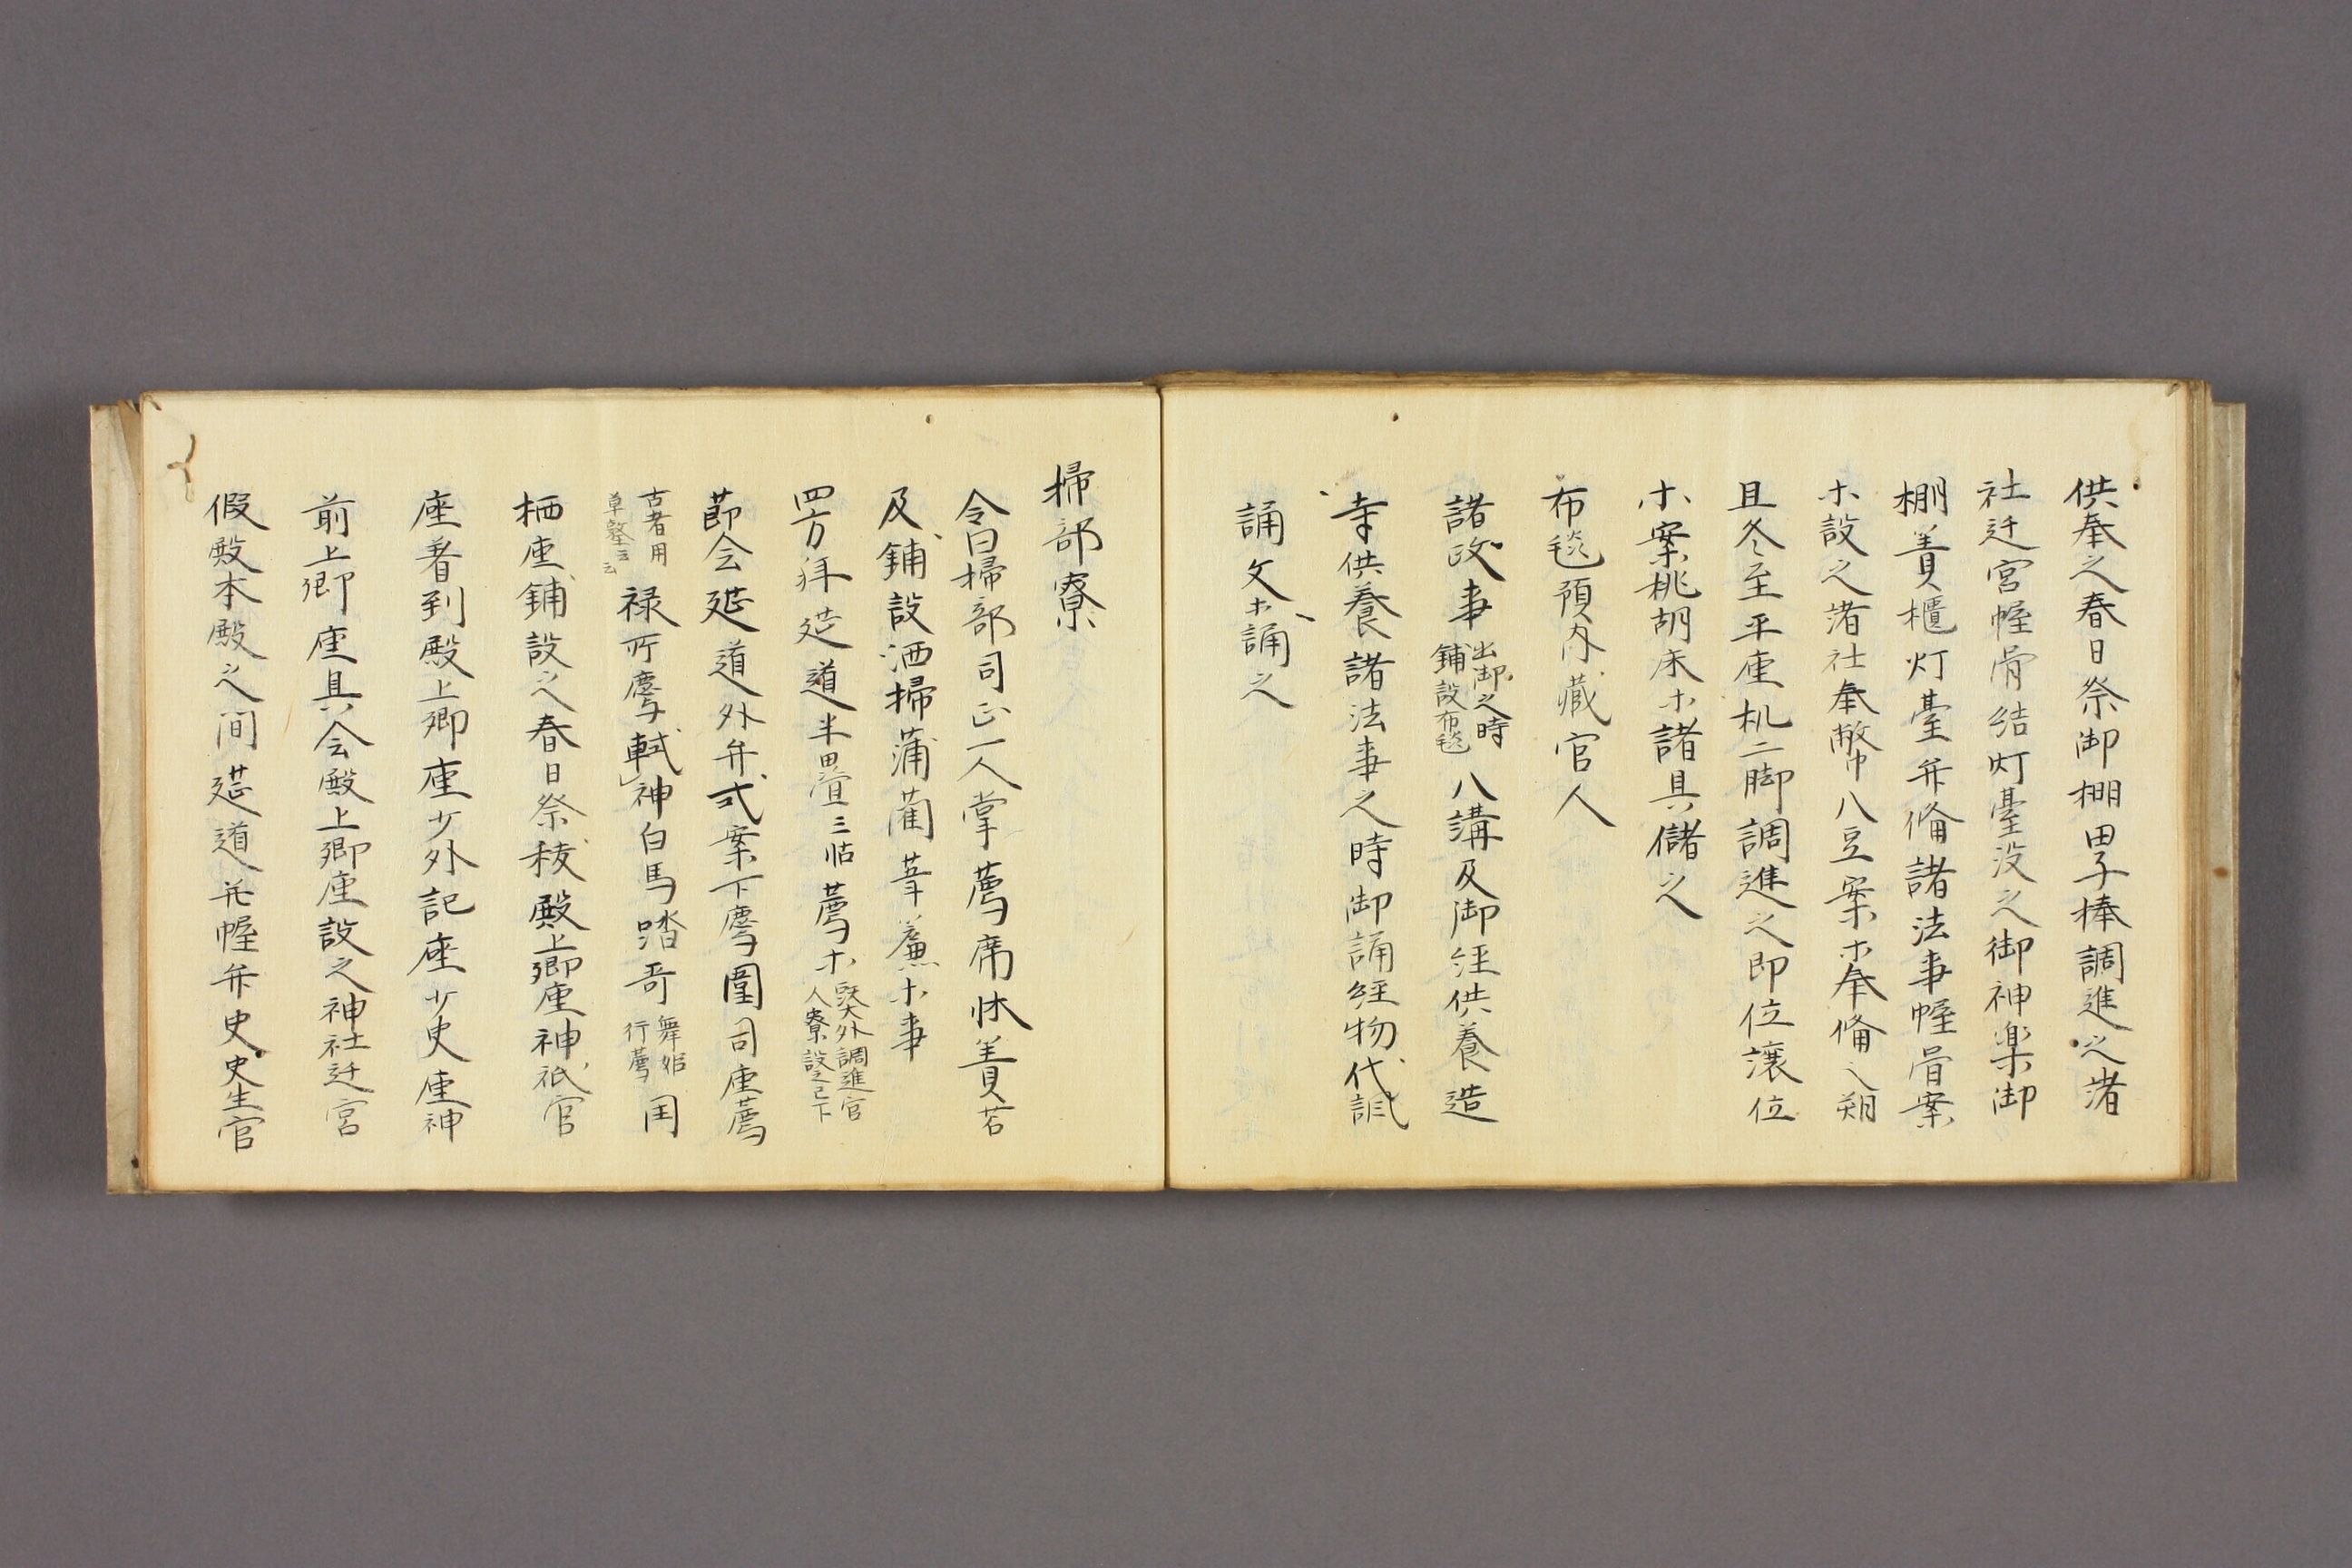 供奉之春日祭御棚田子捧調進之諸
社迁宮幄骨結灯臺没之御神楽御
棚簀櫃灯臺并俻諸法事幄骨案
ホ設之諸社奉幣八豆案ホ奉俻之朔
旦冬至平座机二脚調進之即位讓位
ホ案桃胡床ホ諸具儲之
布毯預内藏官人
諸政事出御之時鋪設布毯八講及御経供養造
寺供養諸法事之時御誦経物代諷
誦文ホ誦之
掃部寮
令曰掃部司正一人掌薦席牀簀苫
及鋪設洒掃蒲藺葦簾ホ事
四方拜筵道半畳三帖薦ホ堅大外調進官人寮設之已下
節会筵道外弁式案下䡄圍司座薦
古者用草墪云云禄所䡄軾神白馬踏哥舞姫行薦国
栖座鋪設之春日祭稜殿上卿座神祇官
座着到殿上卿座少外記座少史座神
前上卿座具会殿上卿座設之神社迁宮
假殿本殿之间筵道并幄并史史生官